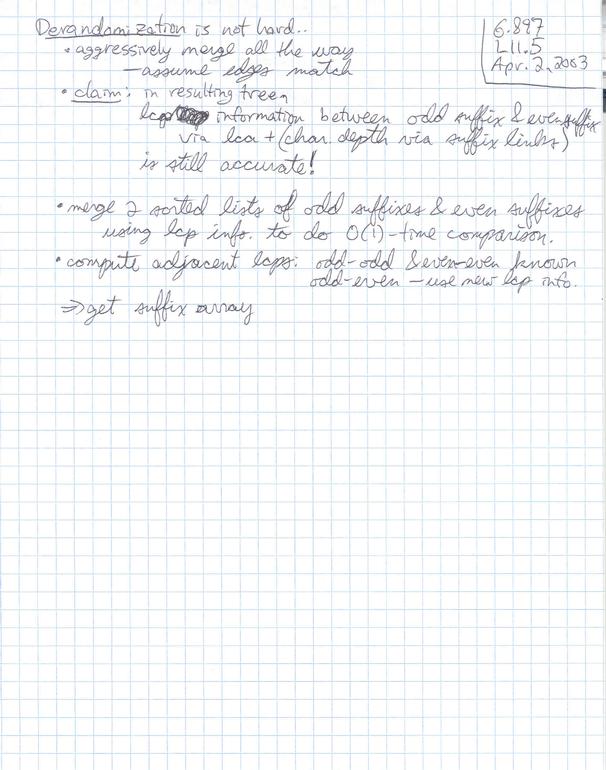 Derandomization is not hard..
6.897
L11.5
Apr. 2, 2003
• aggressively merge all the way
— assume edges match
• claim: in resulting tree,
lcp information between odd suffix & even suffix
via lca + (char. depth via suffix links)
is still accurate!
• merge 2 sorted lists of odd suffixes & even suffixes
using lcp info. to do O(1)-time comparison.
• compute adjacent lcps: odd-odd & even-even known
odd-even — use new lcp info.
⇒ get suffix array